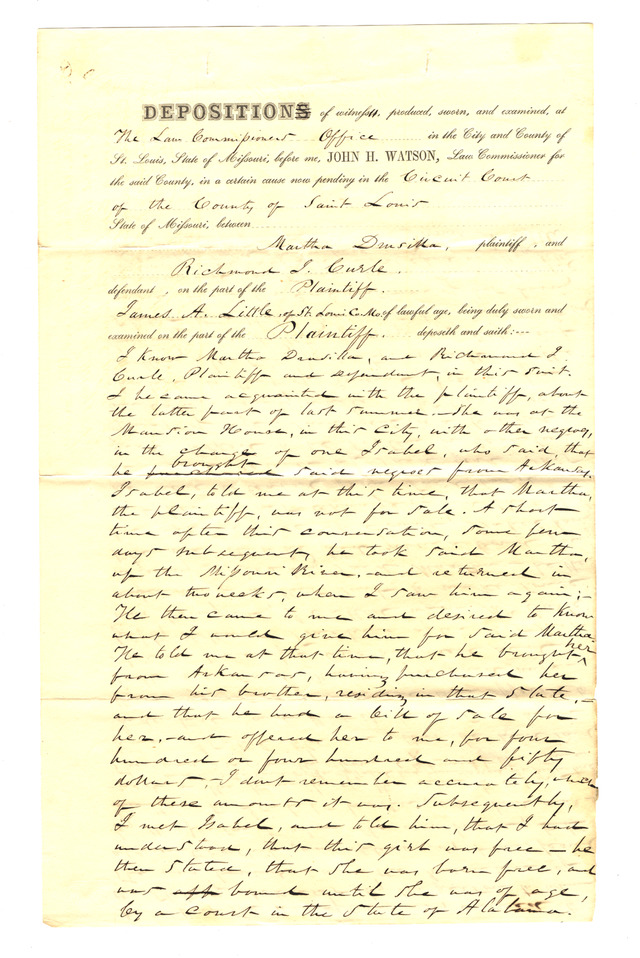 DEPOSITIONS of witness, produced, sworn, and examined, at
The Law Commissioners Office in the City and County of
St. Louis, State of Missouri, before me, JOHN H. WATSON, Law Commissioner for
the said County, in a certain cause now pending in the Circuit Court
of the County of Saint Louis
State of Missouri, between
Martha Drusilla, plaintiff, and
Richmond J. Curle.
defendant, on the part of the Plaintiff.
James A. Little, of St. Louis Co. Mo. of lawful age, being duly sworn and
examined on the part of the Plaintiff. deposeth and saith:—
I know Martha Drusilla, and Richmond J
Curle, Plaintiff and defendant, in this suit.
I became acquainted with the plaintiff, about
the latter part of last summer.—She was at the
Mansion House, in this City, with other negroes,
in the charge of one Isabel, who said, that
he brought said negroes from Arkansas.
Isabel, told me at this time, that Martha,
the plaintiff, was not for sale. A short
time after this conversation, some few
days subsequent, he took said Martha,
up the Missouri River,—and returned in
about two weeks, when I saw him again;—
He then came to me and desired to know
what I would give him for said Martha.
He told me at that time, that he brought her
from Arkansas, having purchased her
from his brother, residing in that State,—
and that he had a bill of sale for
her,—and offered her to me, for four
hundred or four hundred and fifty
dollars,—I dont remember accurately, which
of these amounts it was. Subsequently,
I met Isabel, and told him, that I had
understood, that this girl was free—he
then stated, that she was born free, and
was bound until she was of age,
by a court in the State of Alabama.